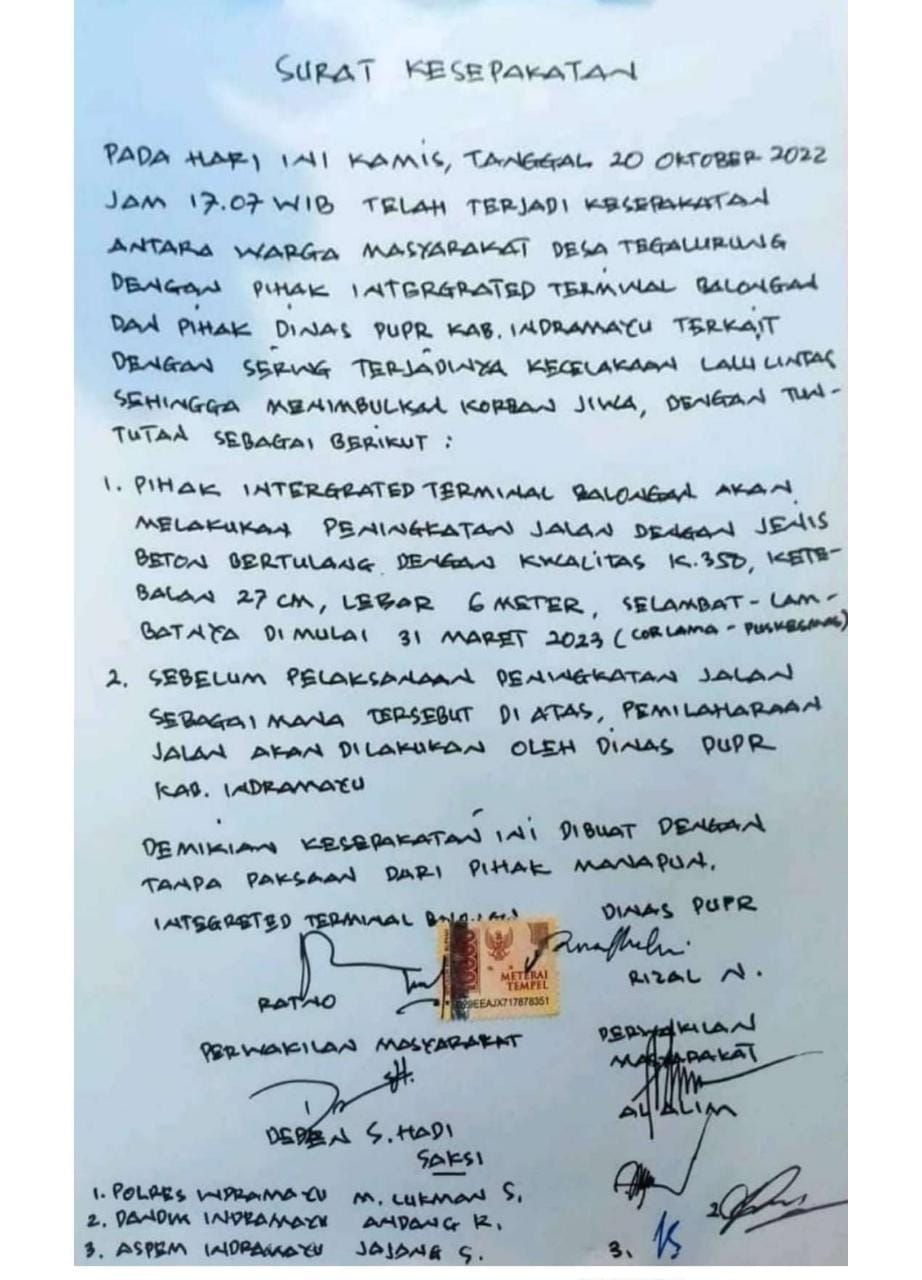 SURAT KESEPAKATAN
PADA HARI INI KAMIS, TANGGAL 20 OKTOBER 2022
JAM 17.07 WIB TELAH TERJADI KESEPAKATAN
ANTARA WARGA MASYARAKAT DESA TEGALURUNG
DENGAN PIHAK INTERGRATED TERMINAL BALONGAN
DAN PIHAK DINAS PUPR KAB. INDRAMAYU TERKAIT
DENGAN SERING TERJADINYA KECELAKAAN LALU LINTAS
SEHINGGA MENIMBULKAN KORBAN JIWA, DENGAN TUN-
TUTAN SEBAGAI BERIKUT :
1. PIHAK INTERGRATED TERMINAL BALONGAN AKAN
MELAKUKAN PENINGKATAN JALAN DENGAN JENIS
BETON BERTULANG DENGAN KWALITAS K.350, KETE-
BALAN 27 CM, LEBAR 6 METER, SELAMBAT-LAM-
BATNYA DI MULAI 31 MARET 2023 (COR LAMA - PUSKESMAS)
2. SEBELUM PELAKSANAAN PENINGKATAN JALAN
SEBAGAI MANA TERSEBUT DI ATAS, PEMILAHARAAN
JALAN AKAN DILAKUKAN OLEH DINAS PUPR
KAB. INDRAMAYU
DEMIKIAN KESEPAKATAN INI DIBUAT DENGAN
TANPA PAKSAAN DARI PIHAK MANAPUN.
INTEGRETED TERMINAL
DINAS PUPR
10000
METERAI
TEMPEL
29EEAJX717878351
RATNO
RIZAL N.
PERWAKILAN MASYARAKAT
PERWAKILAN
MASYARAKAT
DEDEN S. HADI
AL ALIM
SAKSI
1. POLRES INDRAMAYU M. LUKMAN S.
2. DANDIM INDRAMAYU ANDANG K. 2
3. ASPEM INDRAMAYU JAJANG S. 3.